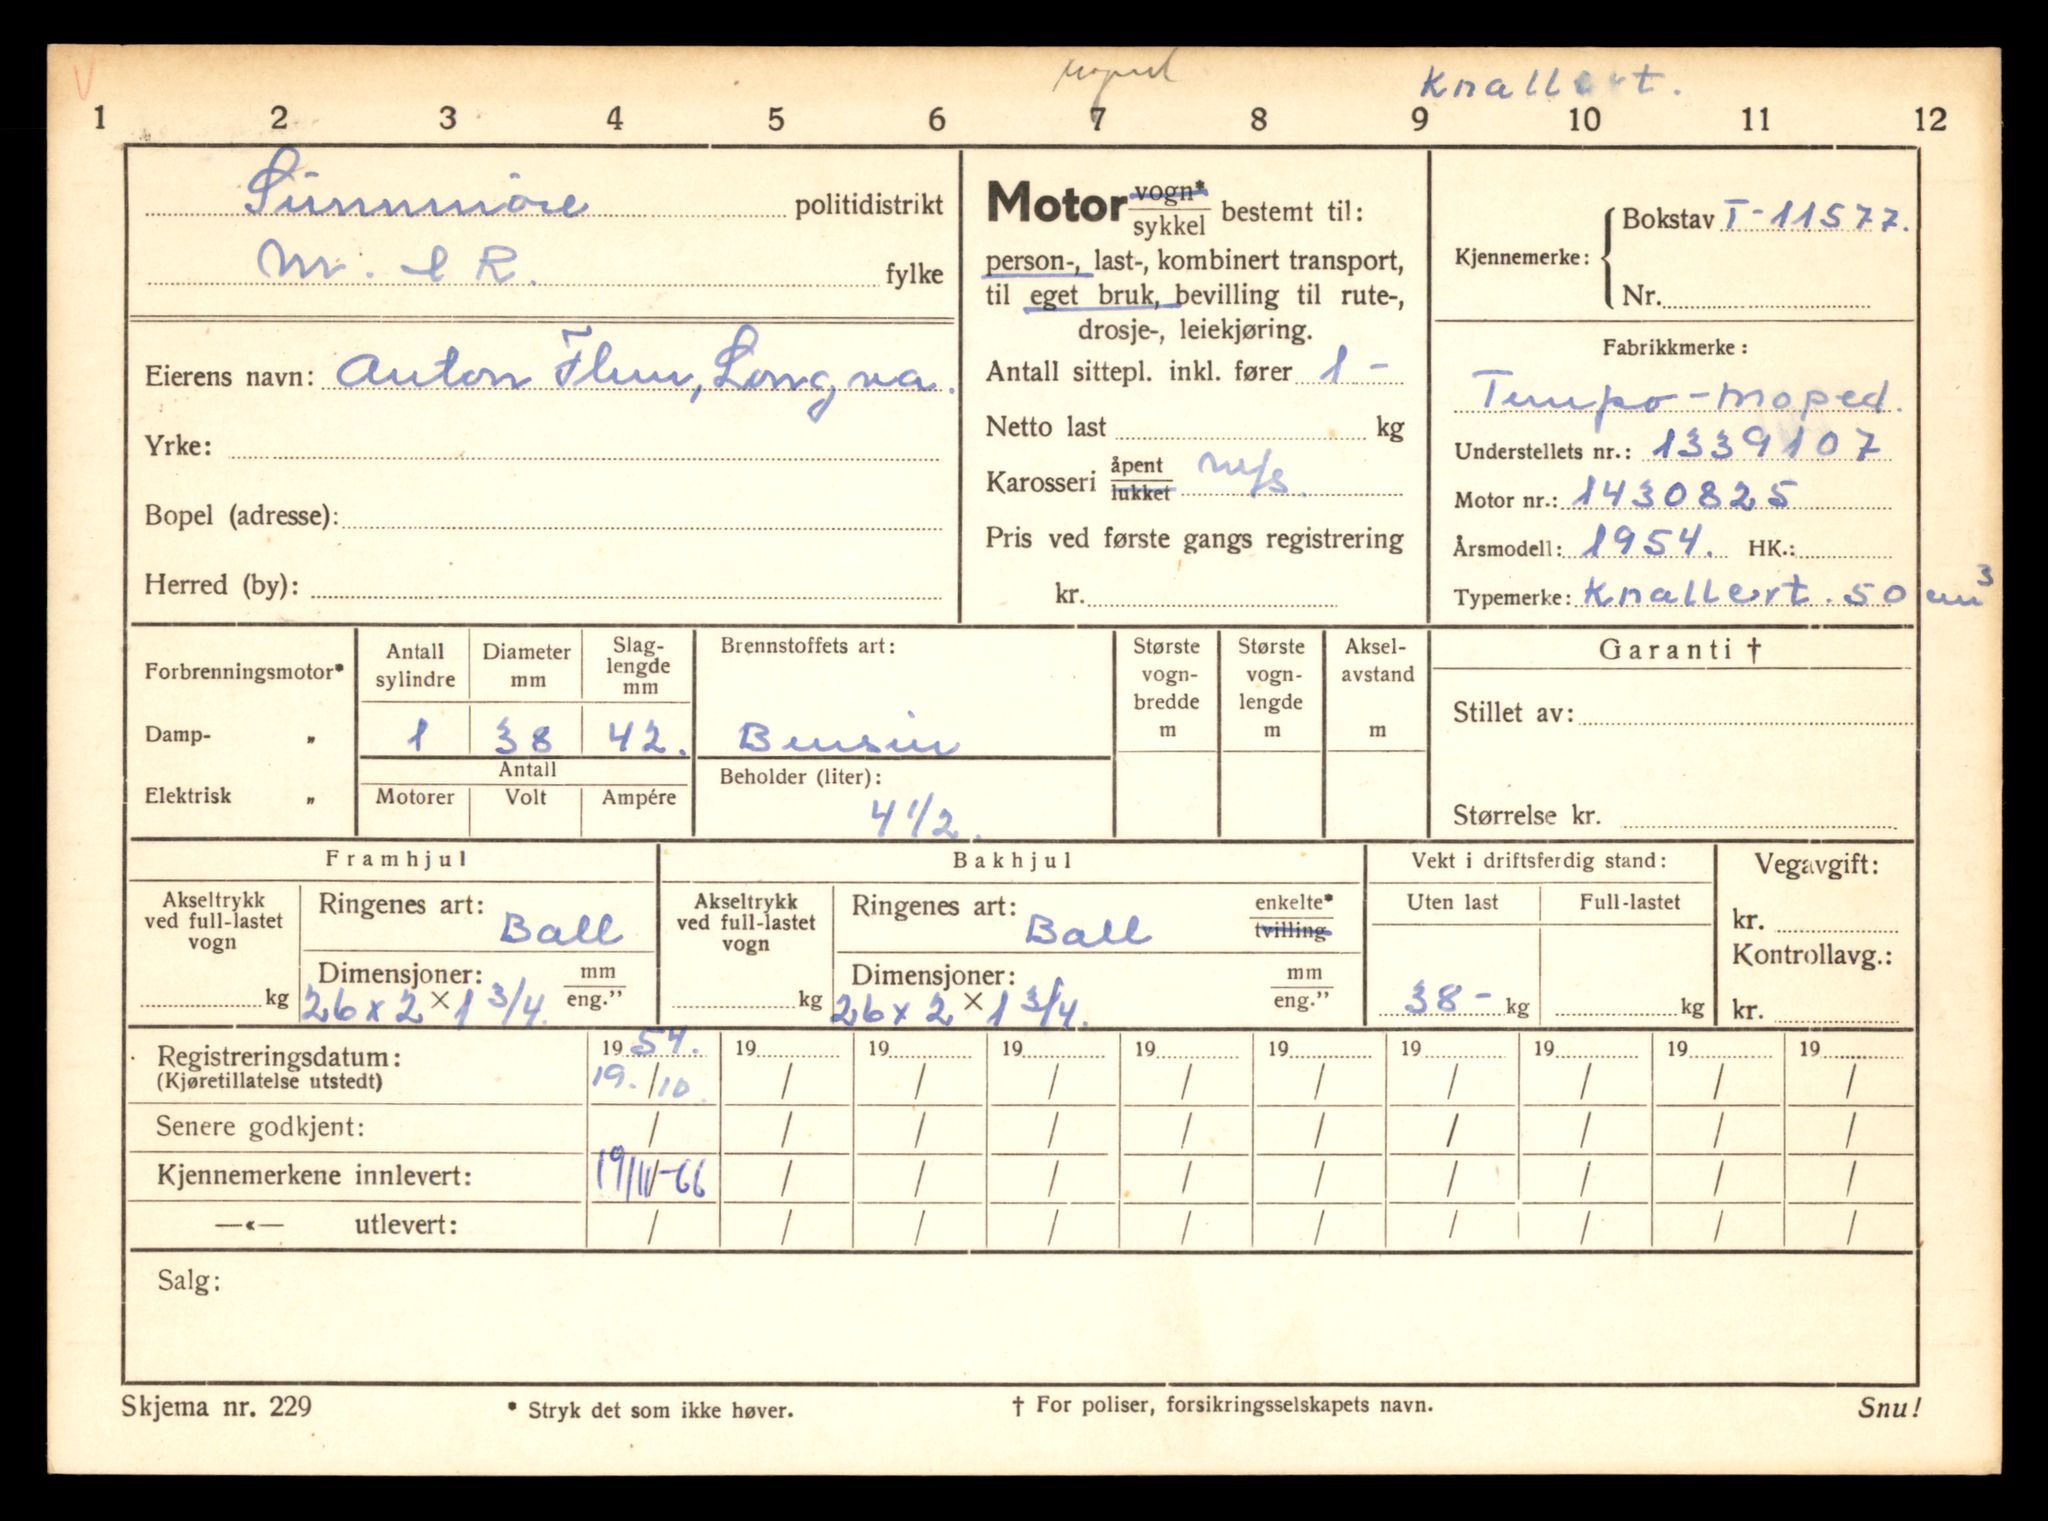 V
moped
Knallert.
1 2 3 4 5 6 7 8 9 10 11 12
Sunnmöre politidistrikt
M. & R. fylke
Eierens navn: Anton Flem, Longva.
Yrke:
Bopel (adresse):
Herred (by):
Motor vogn*
sykkel bestemt til:
person-, last-, kombinert transport,
til eget bruk, bevilling til rute-,
drosje-, leiekjøring.
Antall sittepl. inkl. fører 1 -
Netto last kg
Karosseri åpent
lukket m/s.
Pris ved første gangs registrering
kr.
Kjennemerke: Bokstav T-11577.
Nr.
Fabrikkmerke:
Tempo-moped.
Understellets nr.: 1339107
Motor nr.: 1430825
Årsmodell: 1954. HK.:
Typemerke: Knallert. 50 cm³
Forbrenningsmotor*
Damp- „
Elektrisk „
Antall sylindre
Diameter mm
Slag-
lengde
mm
1 38 42.
Antall
Motorer Volt Ampére
Brennstoffets art:
Bensin
Beholder (liter):
4 1/2.
Største
vogn-
bredde
m
Største
vogn-
lengde
m
Aksel-
avstand
m
Garanti †
Stillet av:
Størrelse kr.
Framhjul
Akseltrykk
ved full-lastet
vogn
kg
Ringenes art:
Ball
Dimensjoner: mm
eng."
26 x 2 x 1 3/4.
Bakhjul
Akseltrykk
ved full-lastet
vogn
kg
Ringenes art: enkelte*
Ball tvilling
Dimensjoner: mm
eng."
26 x 2 x 1 3/4.
Vekt i driftsferdig stand:
Uten last Full-lastet
38 - kg kg
Vegavgift:
kr.
Kontrollavg.:
kr.
Registreringsdatum: 19 54. 19 19 19 19 19 19 19 19 19
(Kjøretillatelse utstedt) 19. / 10. / / / / / / / / /
Senere godkjent: / / / / / / / / / /
Kjennemerkene innlevert: 19/11-66 / / / / / / / / /
—«— utlevert: / / / / / / / / / /
Salg:
Skjema nr. 229 * Stryk det som ikke høver. † For poliser, forsikringsselskapets navn. Snu!